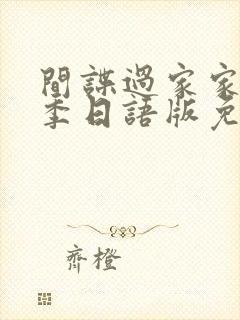 間諜過家家
季日語版免
齊橙